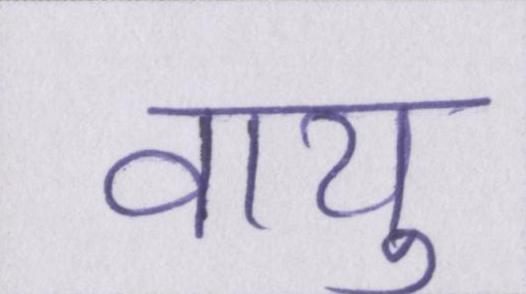 वायु